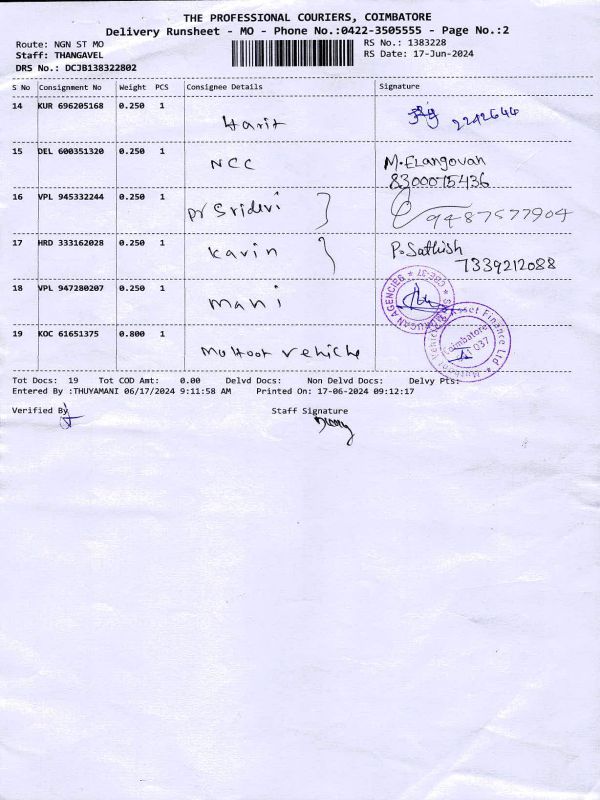 THE PROFESSIONAL COURIERS, COIMBATORE
Delivery Runsheet - MO - Phone No.:0422-3505555 - Page No.:2
Route: NGN ST MO
RS No.: 1383228
Staff: THANGAVEL
RS Date: 17-Jun-2024
DRS No.: DCJB138322802
S No Consignment No Weight PCS Consignee Details Signature
14 KUR 696205168 0.250 1 Harit 2242644
15 DEL 600351320 0.250 1 NCC M.Elangovan
8300075436
16 VPL 945332244 0.250 1 Pr Sridevi 9487577904
17 HRD 333162028 0.250 1 Kavin P.Sathish
7339212088
18 VPL 947280207 0.250 1 Mani
AGENCIES * CBE-37 *
19 KOC 61651375 0.800 1 Muthoot vehicle
Asset Finance Ltd *
Coimbatore
037
Tot Docs: 19 Tot COD Amt: 0.00 Delvd Docs: Non Delvd Docs: Delvy Pts:
Entered By :THUYAMANI 06/17/2024 9:11:58 AM Printed On: 17-06-2024 09:12:17
Verified By
Staff Signature